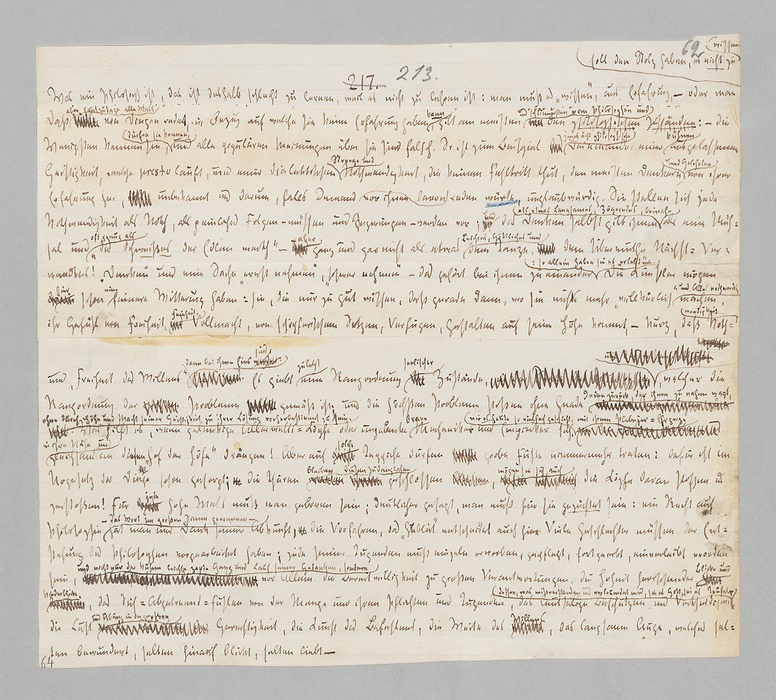 wissen.
62
soll den Stolz haben, es nicht zu
217. 213.
Was ein Philosoph ist, das ist deshalb schlecht zu lernen, weil es nicht zu lehren ist: man muß es „wissen“, aus Erfahrung, — oder man
aber heutzutage alle Welt
kann
und schlimmsten vom Philosophen und
Daß von Dingen redet, in Bezug auf welche sie keine Erfahrung haben, gilt am meisten den philosophischen Zuständen: — die
dürfen sie kennen,
kühnen
Wenigsten kennen sie, und alle populären Meinungen über sie sind falsch. So ist zum Beispiel Beieinander einer ausgelassenen
Strenge und
und Gelehrten
Geistigkeit, welche presto läuft, und einer dialektischen Nothwendigkeit, die keinen Fehltritt thut, den meisten Denkern von ihrer
Erfahrung her, unbekannt und darum, falls Jemand vor ihnen davon reden wollte, unglaubwürdig. Sie stellen sich jede
als etwas Langsames, Zögerndes, beinahe
Nothwendigkeit als Noth, als peinliches Folgen-müssen und Gezwungen-werden vor; und das Denken selbst gilt ihnen als eine Müh-
oft genug als
Leichtes, Göttliches und
sal und „des Schweißes der Edlen werth“ — aber ganz und gar nicht als etwas dem Tanze, dem Übermuthe Nächst-Ver-
: so allein haben sie es „erlebt“.
wandtes! „Denken“ und eine Sache „ernst nehmen“, „schwer nehmen“ — das gehört bei ihnen zu einander Die Künstler mögen
und Alles nothwendig
hier schon eine feinere Witterung haben: sie, die nur zu gut wissen, daß gerade dann, wo sie nichts mehr „willkürlich“ machen,
ihr Gefühl von Freiheit, Feinheit, Vollmacht, von schöpferischem Setzen, Verfügen, Gestalten auf seine Höhe kommt — kurz, daß Noth-
dann bei ihnen Eins sind.
zuletzt
seelischer
und „Freiheit des Willens“ Es giebt eine Rangordnung Zustände, welcher die
Rangordnung der Probleme gemäß ist; und die höchsten Probleme stoßen ohne Gnade Jeden zurück, der ihnen zu nahen wagt,
ohne durch Höhe und Macht seiner Geistigkeit zu ihrer Lösung vorherbestimmt zu sein.
wie es heute so vielfach geschieht, mit ihrem Plebejer-Ehrgeize
Was hilft es, wenn gelenkige Allerwelts-Köpfe oder ungelenke brave Mechaniker und Empiriker sich
in ihre Nähe und
solche
gleichsam an diesen „Hof der Höfe“ drängen! Aber auf Teppiche dürfen grobe Füße nimmermehr treten: dafür ist im
bleiben diesen Zudringlichen
mögen sie sich auch
Urgesetz der Dinge schon gesorgt; die Thüren geschlossen die Köpfe daran stoßen und
zerstoßen! Für jede hohe Welt muß man geboren sein; deutlicher gesagt, man muß für sie gezüchtet sein: ein Recht auf
— das Wort im großen Sinne genommen —
Philosophie hat man nur Dank seiner Abkunft, die Vorfahren, das „Geblüt“ entscheidet auch hier. Viele Geschlechter müssen der Ent-
stehung des Philosophen vorgearbeitet haben; jede seiner Tugenden muß einzeln erworben, gepflegt, fortgeerbt, einverleibt worden
und nicht nur der kühne leichte zarte Gang und Lauf seiner Gedanken, sondern
sein, vor Allem die Bereitwilligkeit zu großen Verantwortungen, die Hoheit herrschender Blicke und
Niederblicke, das Sich-Abgetrennt-Fühlen von der Menge und ihren Pflichten und Tugenden, das leutselige Beschützen und Vertheidigen
dessen, was mißverstanden und verleumdet wird, sei es Gott, sei es Teufel,
die Lust und Übung in der großen Gerechtigkeit, die Kunst des Befehlens, die Weite des Willens, das langsame Auge, welches sel-
ten bewundert, selten hinauf blickt, selten liebt —
64